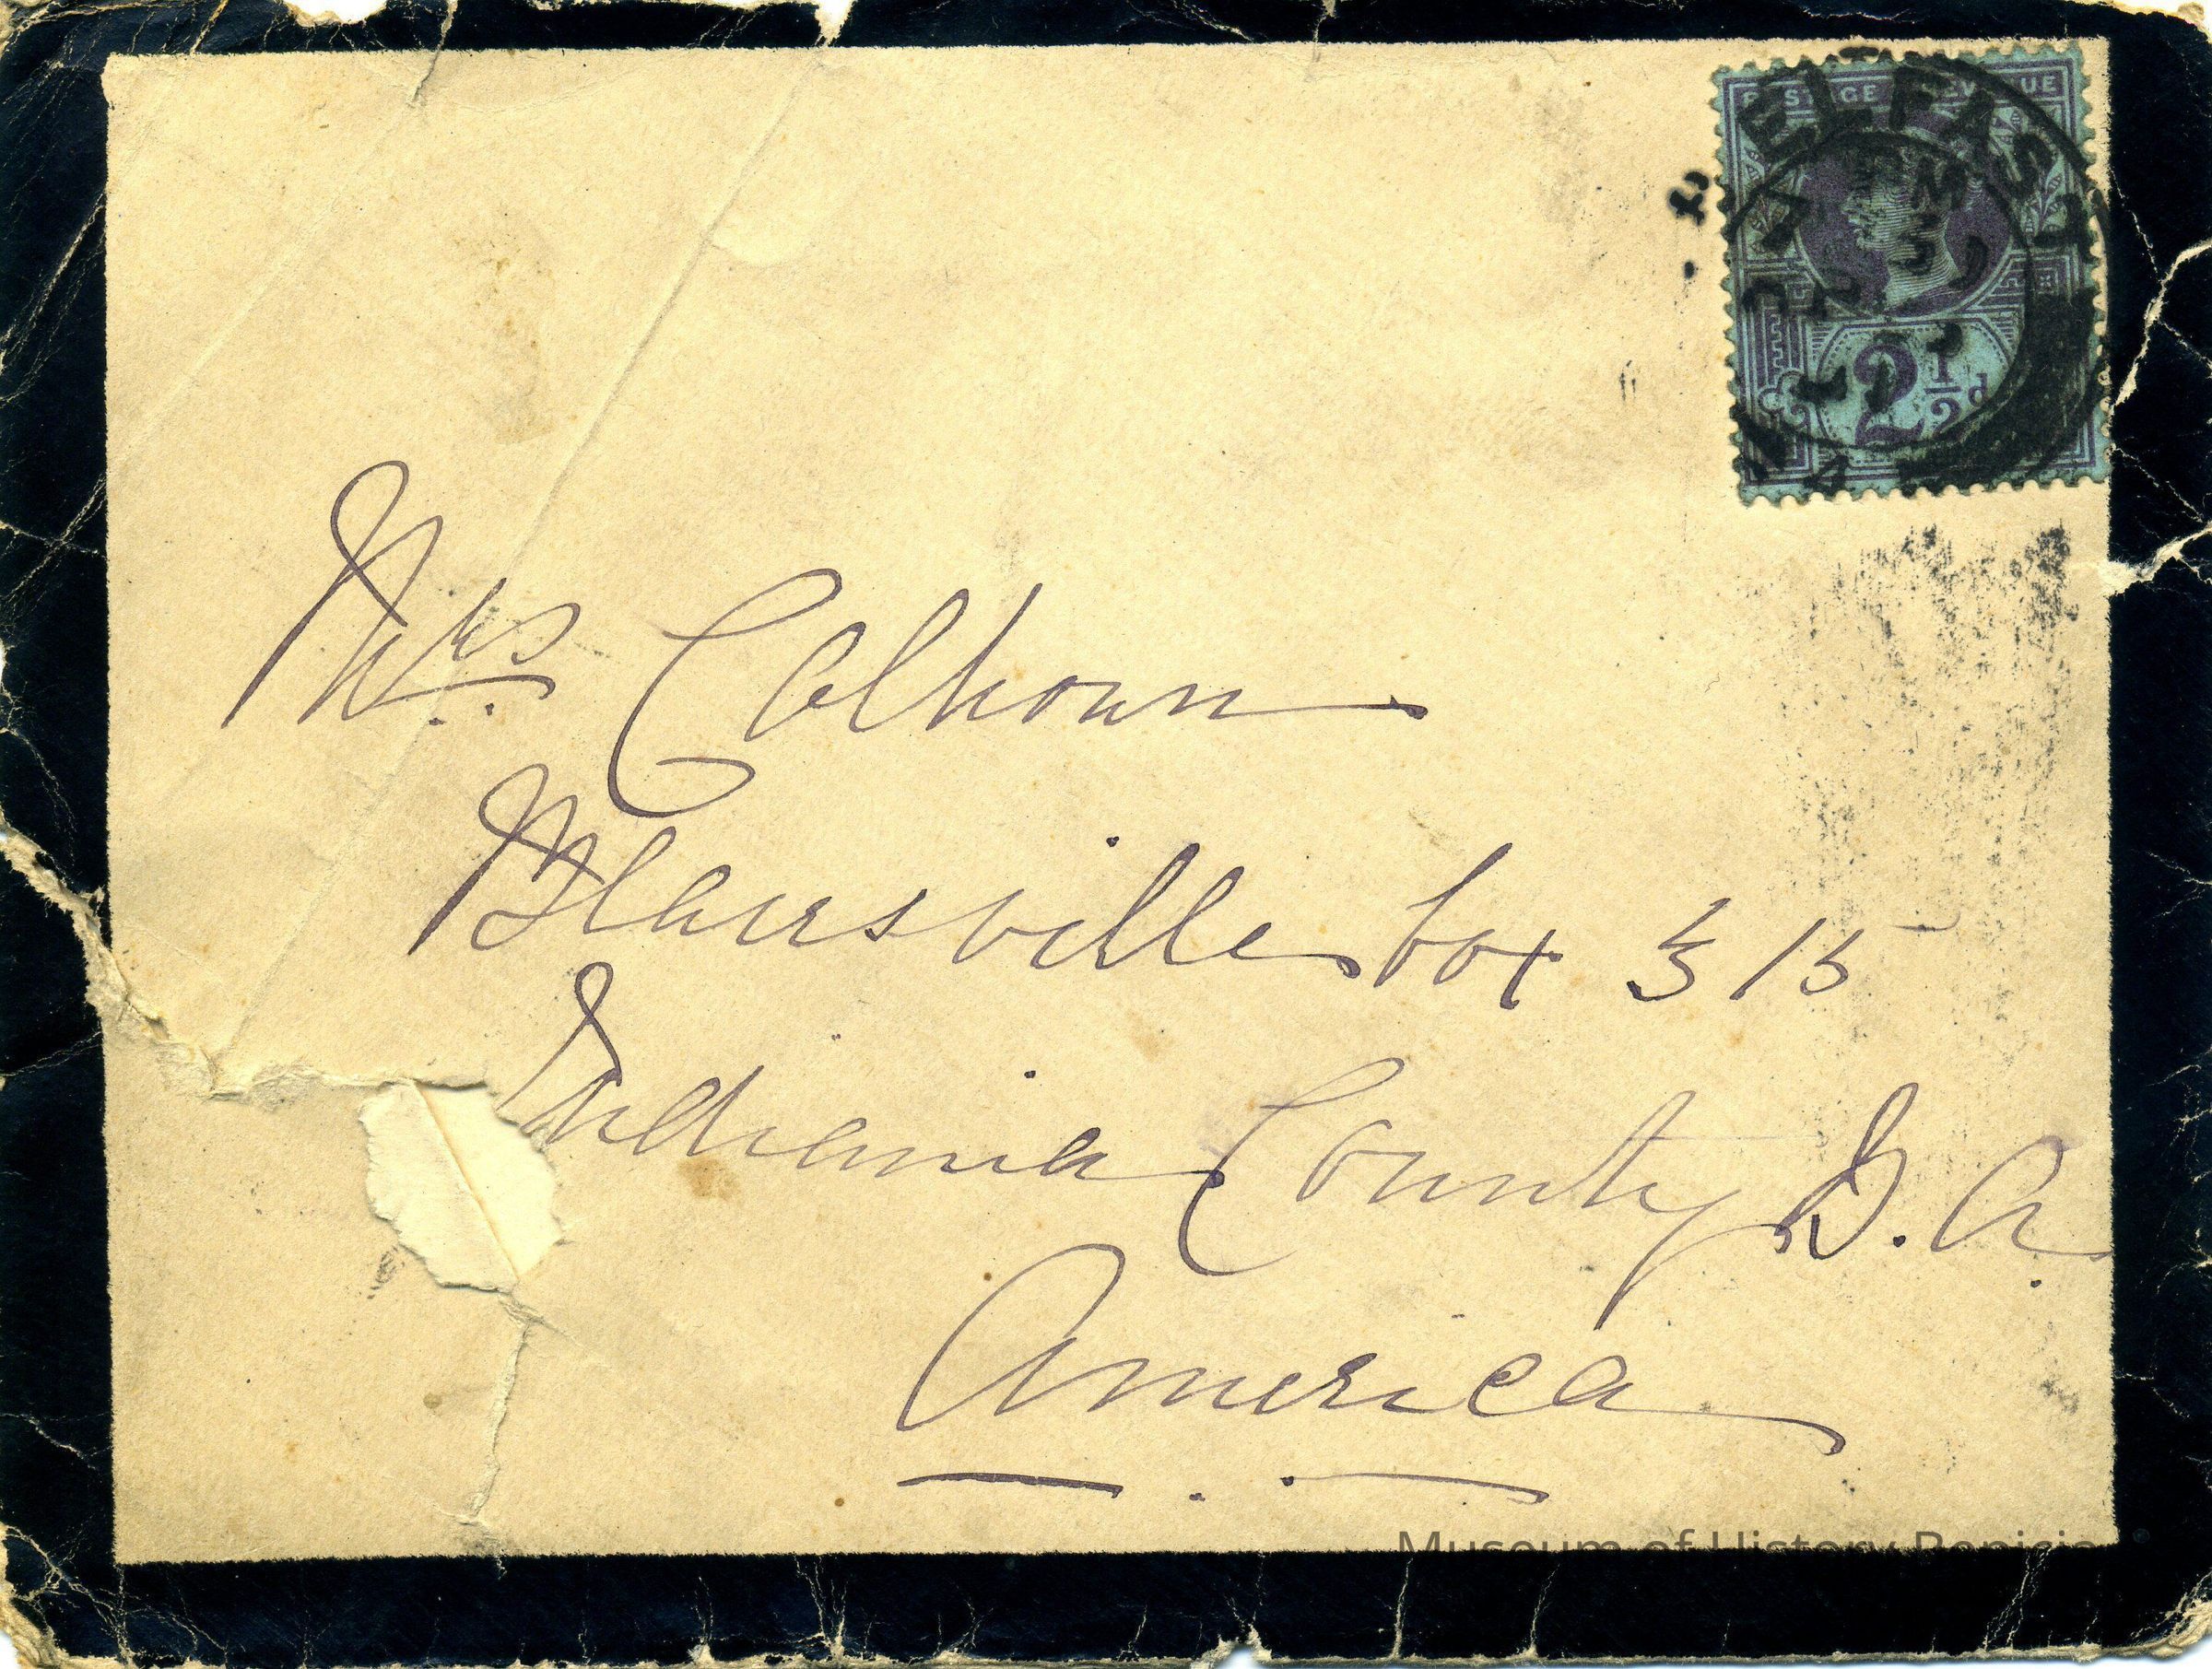 POSTAGE REVENUE
BELFAST
2½d
Mrs Calhoun
Blairsville box 315
Indiania County P.A.
America
Museum of History Benicia